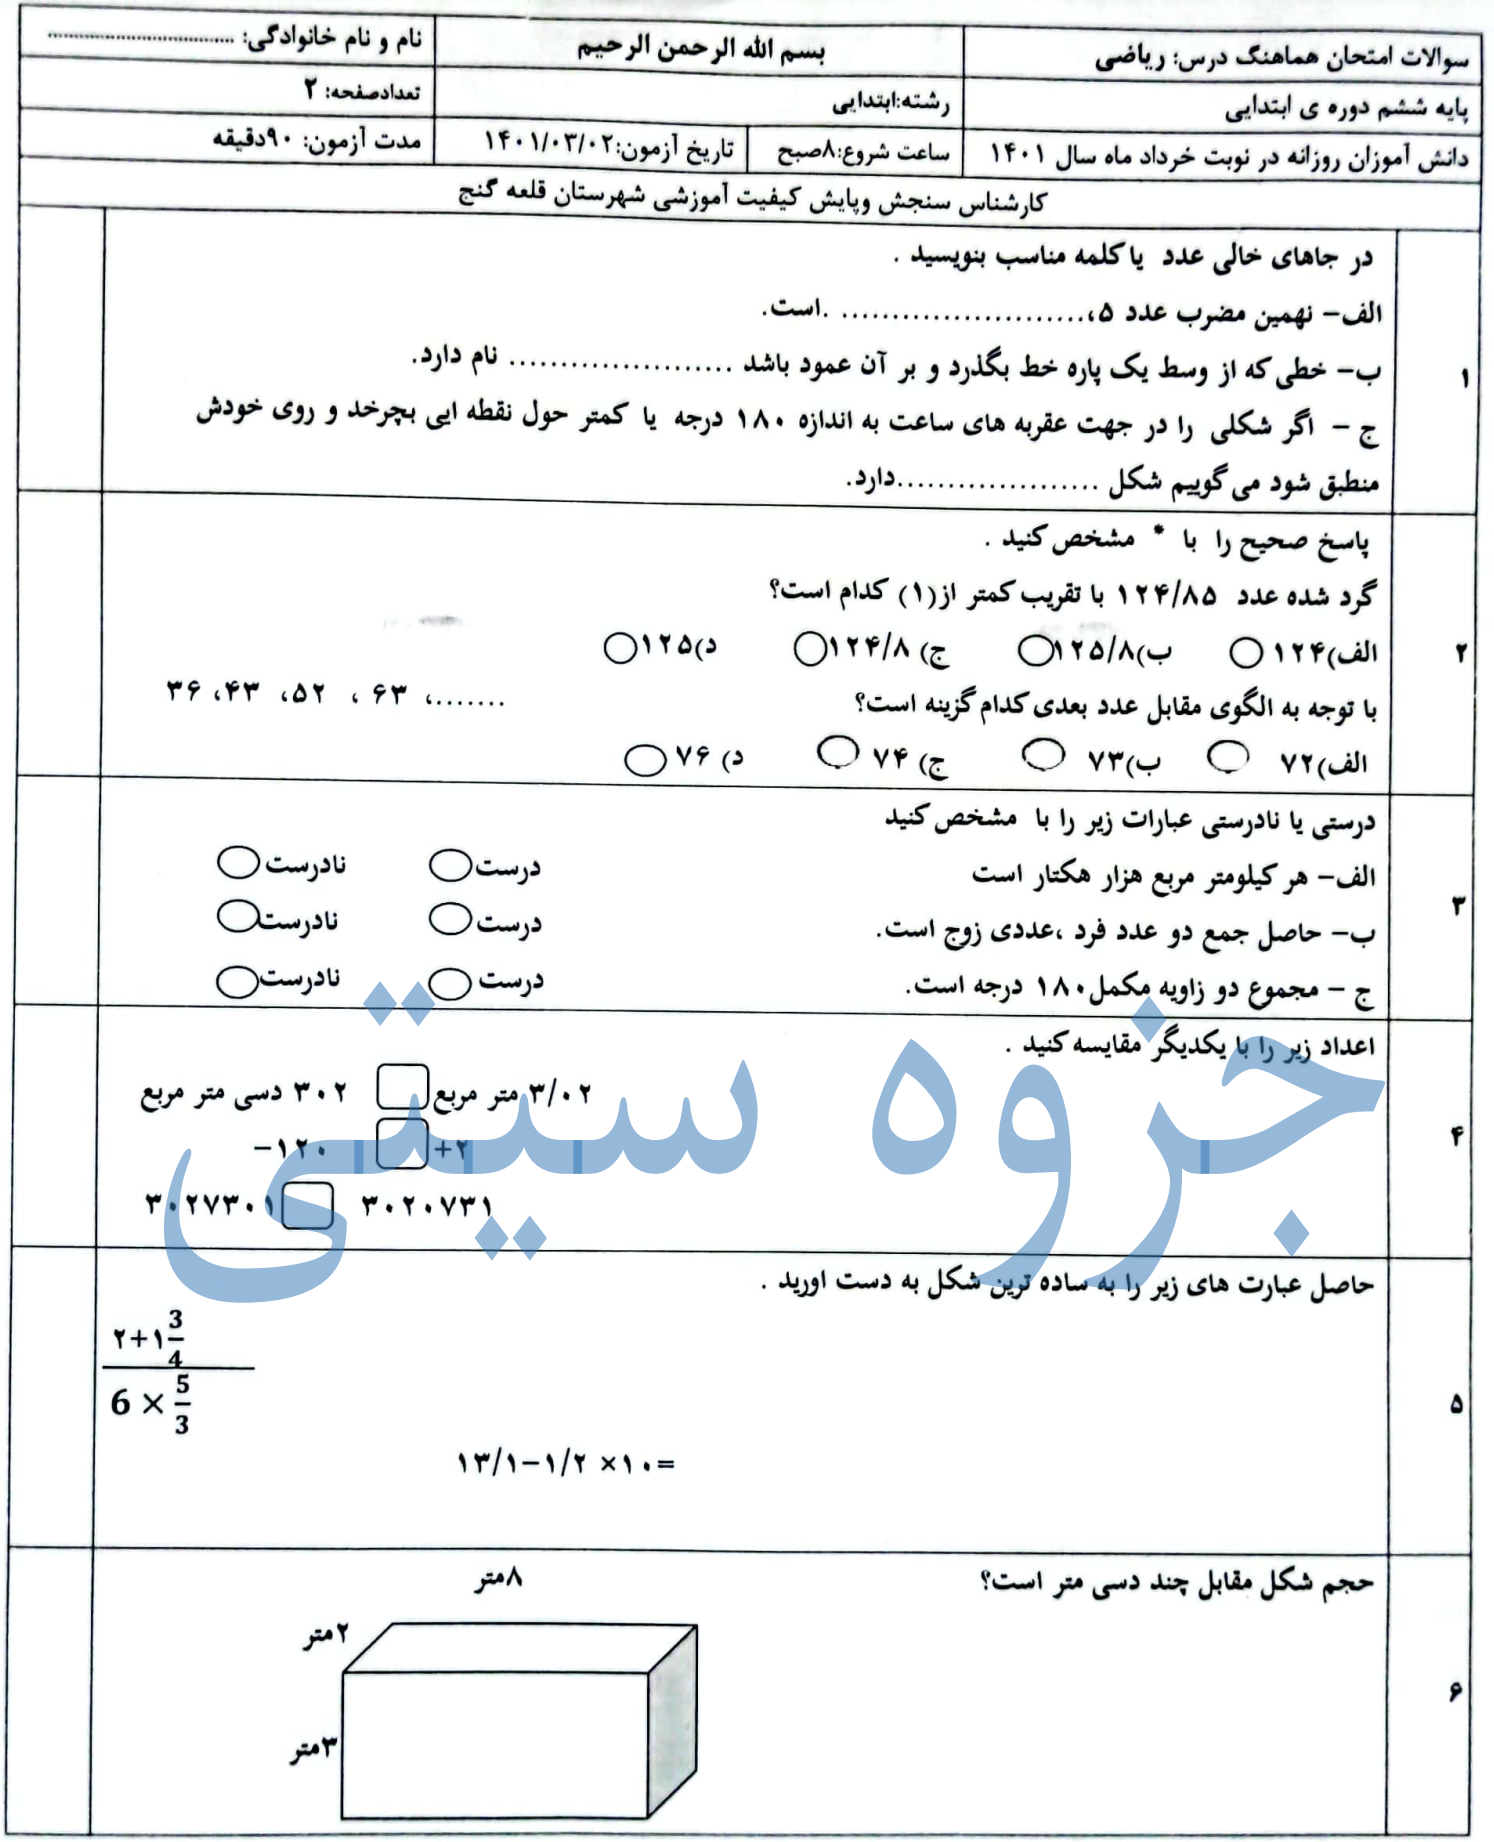 سوالات امتحان هماهنگ درس: ریاضی
بسم الله الرحمن الرحیم
نام و نام خانوادگی: ................................
پایه ششم دوره ی ابتدایی
رشته:ابتدایی
تعدادصفحه: ۲
دانش آموزان روزانه در نوبت خرداد ماه سال ۱۴۰۱
ساعت شروع:۸صبح
تاریخ آزمون:۱۴۰۱/۰۳/۰۲
مدت آزمون: ۹۰دقیقه
کارشناس سنجش وپایش کیفیت آموزشی شهرستان قلعه گنج
۱
در جاهای خالی عدد یا کلمه مناسب بنویسید .
الف– نهمین مضرب عدد ۵،........................ .است.
ب– خطی که از وسط یک پاره خط بگذرد و بر آن عمود باشد ...................... نام دارد.
ج – اگر شکلی را در جهت عقربه های ساعت به اندازه ۱۸۰ درجه یا کمتر حول نقطه ایی بچرخد و روی خودش
منطبق شود می گوییم شکل ....................دارد.
۲
پاسخ صحیح را با * مشخص کنید .
گرد شده عدد ۱۲۴/۸۵ با تقریب کمتر از(۱) کدام است؟
الف)۱۲۴ ب)۱۲۵/۸ ج) ۱۲۴/۸ د)۱۲۵
با توجه به الگوی مقابل عدد بعدی کدام گزینه است؟ .......، ۶۳ ، ۵۲، ۴۳، ۳۶
الف)۷۲ ب)۷۳ ج) ۷۴ د) ۷۶
۳
درستی یا نادرستی عبارات زیر را با مشخص کنید
الف– هر کیلومتر مربع هزار هکتار است درست نادرست
ب– حاصل جمع دو عدد فرد ،عددی زوج است. درست نادرست
ج – مجموع دو زاویه مکمل۱۸۰ درجه است. درست نادرست
۴
اعداد زیر را با یکدیگر مقایسه کنید .
۳/۰۲ متر مربع ۳۰۲ دسی متر مربع
+۲ −۱۲۰
۳۰۲۷۳۰۱ ۳۰۲۰۷۳۱
جزوه سیتی
۵
حاصل عبارت های زیر را به ساده ترین شکل به دست اورید .
۲+۱ 3/4
6 × 5/3
۱۳/۱−۱/۲ ×۱۰=
۶
حجم شکل مقابل چند دسی متر است؟
۸متر
۲متر
۳متر